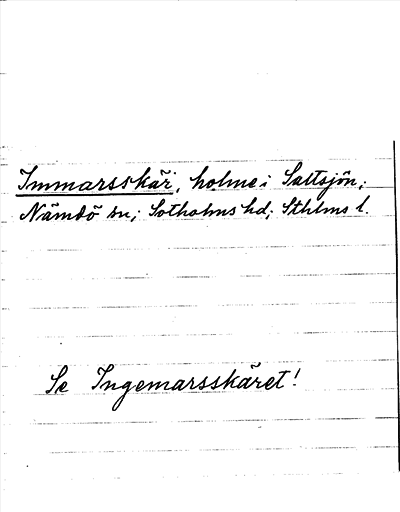 Immarsskär, holme i Saltsjön;
Nämdö sn; Sotholms hd; Sthlms l.
Se Ingemarsskäret!